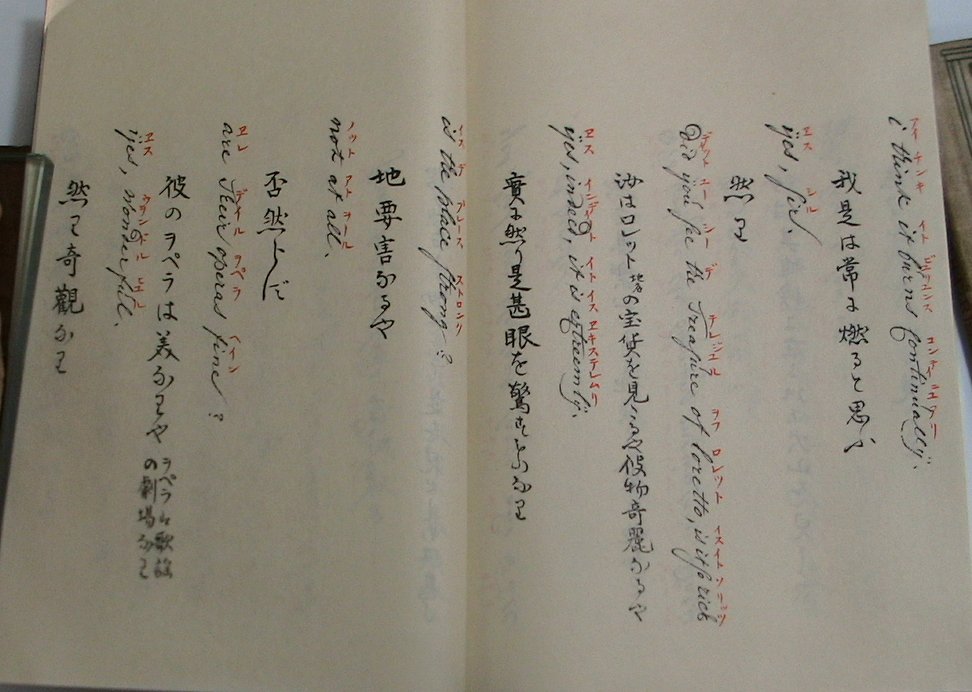 アイ チンキ イト
i think it burns continually.
我是は常に燃ると思う
ヱス シル
yes, sir.
然り
ユー シー デ テレジュル ヲフ ロレット イスイト
Did you see the Treasure of loretto, is it so rich
汝はロレット地名の宝貨を見たるや彼物奇麗なるや
ヱス インディート イト イス ヱキステレムリ
yes, indeed, it is extreemly.
實に然り是甚眼を驚すことなり
イス デ プレース ストロング
is the place strong?
地要害なるや
ノット アト ヲール
not at all.
否然らず
ヱレ デイル ヲペラ ヘイン
are their operas fine?
彼のヲペラは美なりや
ヲペラは歌謡
の劇場なり
ヱス ヲンドル
yes, wonderful.
然り奇觀なり